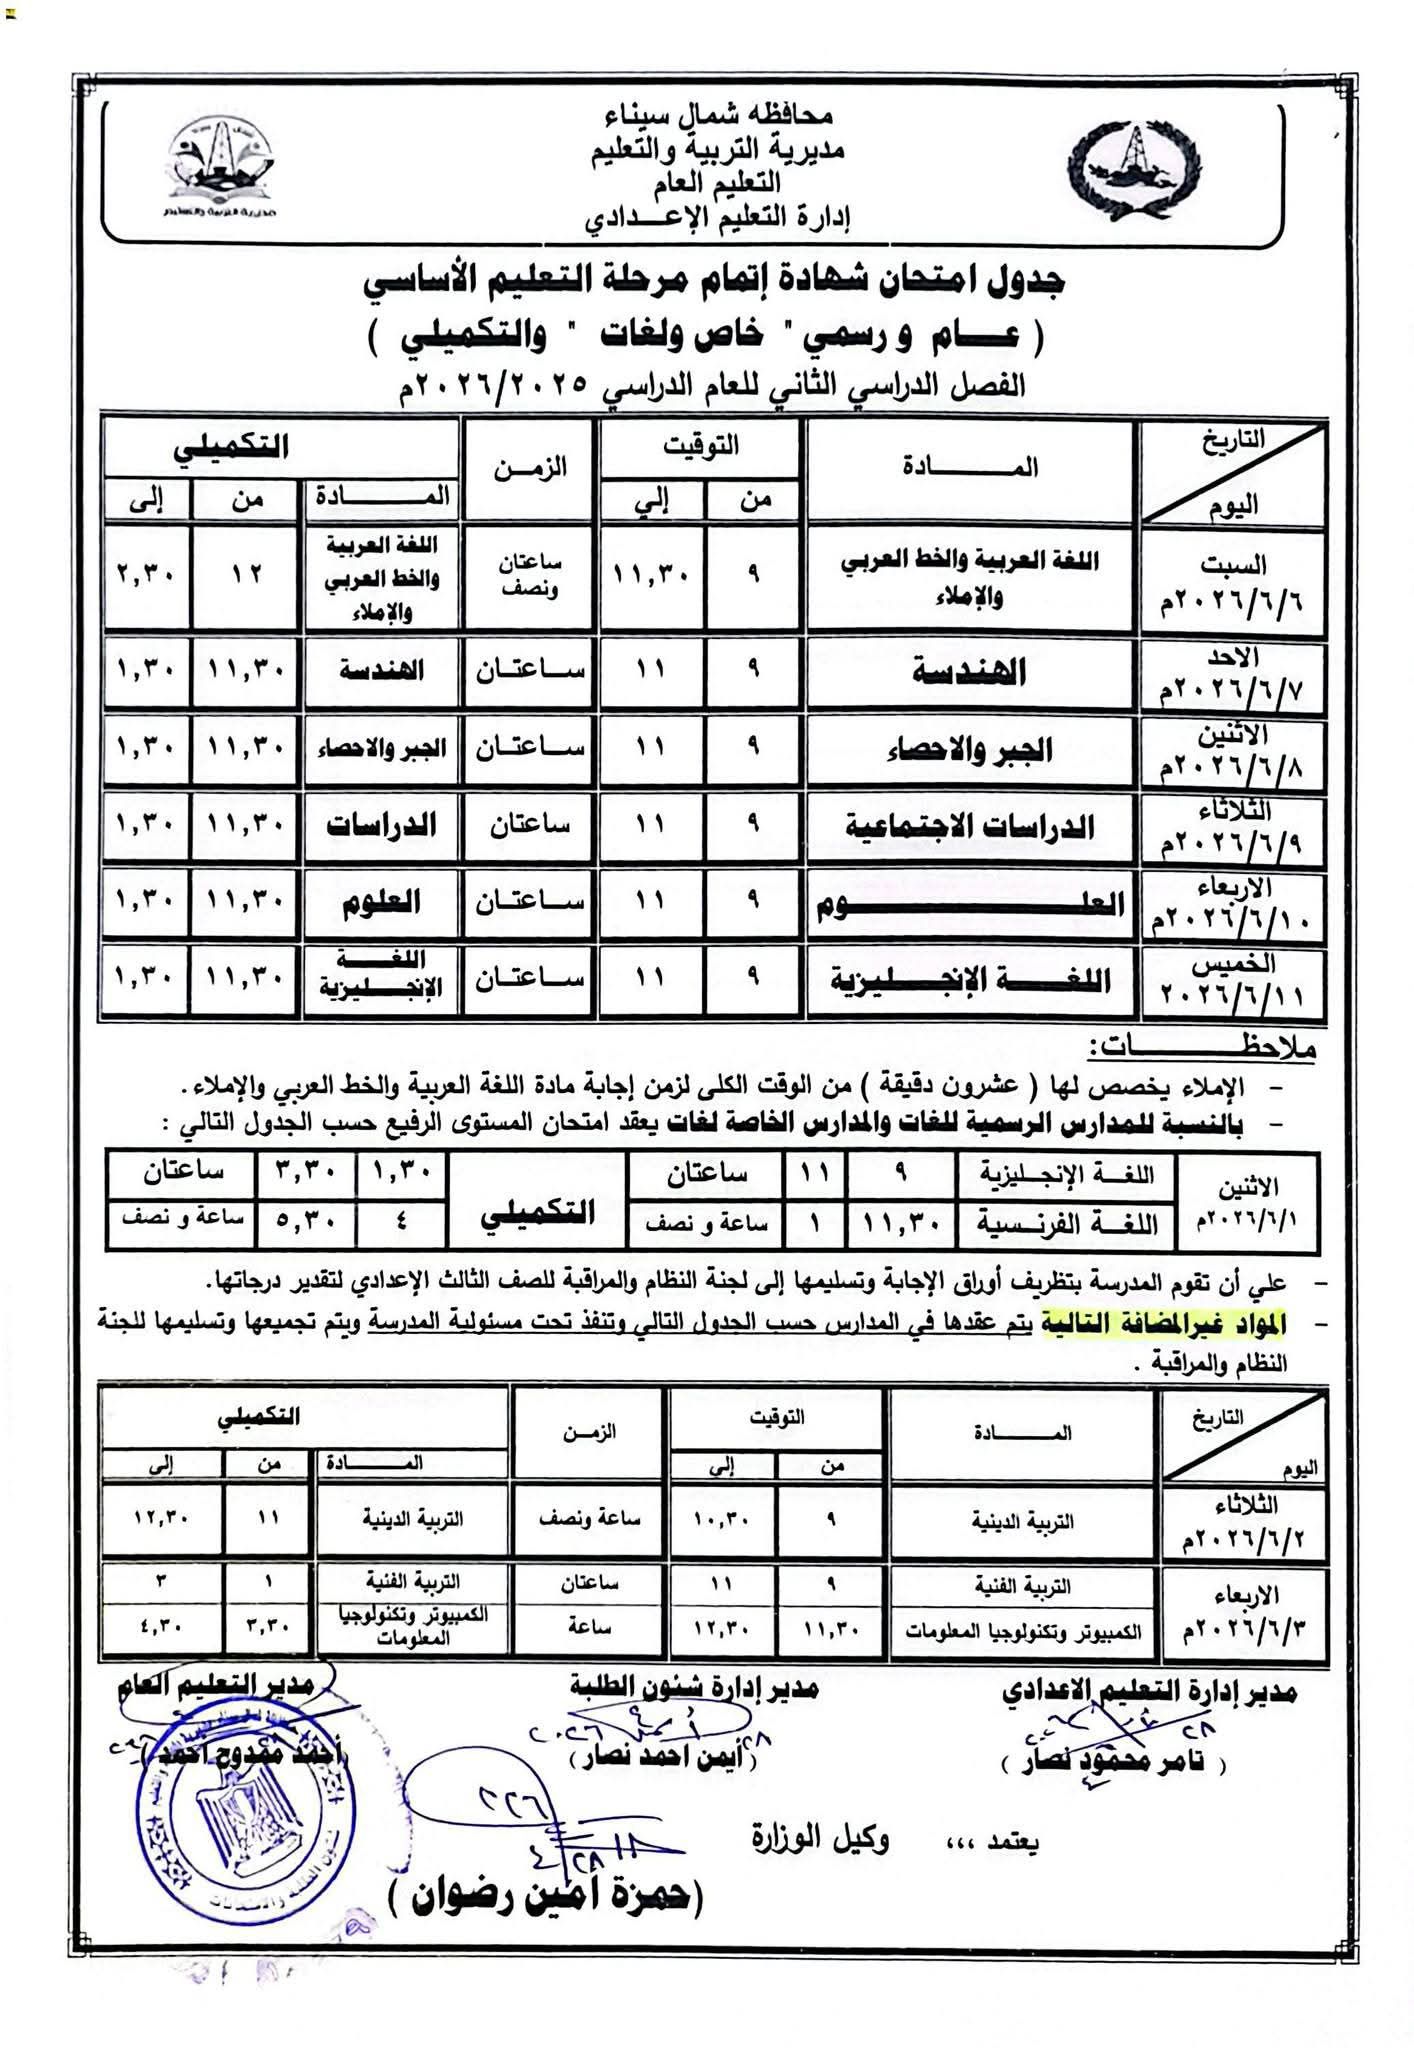 محافظه شمال سيناء
مديرية التربية والتعليم
التعليم العام
إدارة التعليم الإعـــدادي
مديرية التربية والتعليم
جدول امتحان شهادة إتمام مرحلة التعليم الأساسي
( عـــام و رسمي " خاص ولغات " والتكميلي )
الفصل الدراسي الثاني للعام الدراسي ٢٠٢٦/٢٠٢٥م
التاريخ اليوم | المـــــــادة | التوقيت | الزمـن | التكميلي
من | إلي | المـــــادة | من | إلى
السبت ٢٠٢٦/٦/٦م | اللغة العربية والخط العربي والإملاء | ٩ | ١١,٣٠ | ساعتان ونصف | اللغة العربية والخط العربي والإملاء | ١٢ | ٢,٣٠
الاحد ٢٠٢٦/٦/٧م | الهندسة | ٩ | ١١ | ساعتان | الهندسة | ١١,٣٠ | ١,٣٠
الاثنين ٢٠٢٦/٦/٨م | الجبر والاحصاء | ٩ | ١١ | ساعتان | الجبر والاحصاء | ١١,٣٠ | ١,٣٠
الثلاثاء ٢٠٢٦/٦/٩م | الدراسات الاجتماعية | ٩ | ١١ | ساعتان | الدراسات | ١١,٣٠ | ١,٣٠
الاربعاء ٢٠٢٦/٦/١٠م | العلـــــــــوم | ٩ | ١١ | ساعتان | العلوم | ١١,٣٠ | ١,٣٠
الخميس ٢٠٢٦/٦/١١ | اللغـــة الإنجـــليزية | ٩ | ١١ | ساعتان | اللغـــة الإنجـــليزية | ١١,٣٠ | ١,٣٠
ملاحظـــــــات:
- الإملاء يخصص لها ( عشرون دقيقة ) من الوقت الكلى لزمن إجابة مادة اللغة العربية والخط العربي والإملاء .
- بالنسبة للمدارس الرسمية للغات والمدارس الخاصة لغات يعقد امتحان المستوى الرفيع حسب الجدول التالي :
الاثنين ٢٠٢٦/٦/١م | اللغـة الإنجليزية | ٩ | ١١ | ساعتان | التكميلي | ١,٣٠ | ٣,٣٠ | ساعتان
اللغـة الفرنـسية | ١١,٣٠ | ١ | ساعة و نصف | ٤ | ٥,٣٠ | ساعة و نصف
- علي أن تقوم المدرسة بتظريف أوراق الإجابة وتسليمها إلى لجنة النظام والمراقبة للصف الثالث الإعدادي لتقدير درجاتها.
- المواد غيرالمضافة التالية يتم عقدها في المدارس حسب الجدول التالي وتنفذ تحت مسئولية المدرسة ويتم تجميعها وتسليمها للجنة
النظام والمراقبة .
التاريخ اليوم | المـــــــادة | التوقيت | الزمـن | التكميلي
من | إلي | المـــــادة | من | إلى
الثلاثاء ٢٠٢٦/٦/٢م | التربية الدينية | ٩ | ١٠,٣٠ | ساعة ونصف | التربية الدينية | ١١ | ١٢,٣٠
الاربعاء ٢٠٢٦/٦/٣م | التربية الفنية | ٩ | ١١ | ساعتان | التربية الفنية | ١ | ٣
الكمبيوتر وتكنولوجيا المعلومات | ١١,٣٠ | ١٢,٣٠ | ساعة | الكمبيوتر وتكنولوجيا المعلومات | ٣,٣٠ | ٤,٣٠
مدير إدارة التعليم الاعدادي | مدير إدارة شئون الطلبة | مدير التعليم العام
( تامر محمود نصار ) | (أيمن احمد نصار ) | (أحمد ممدوح احمد )
يعتمد ,,, وكيل الوزارة
(حمزة أمين رضوان )